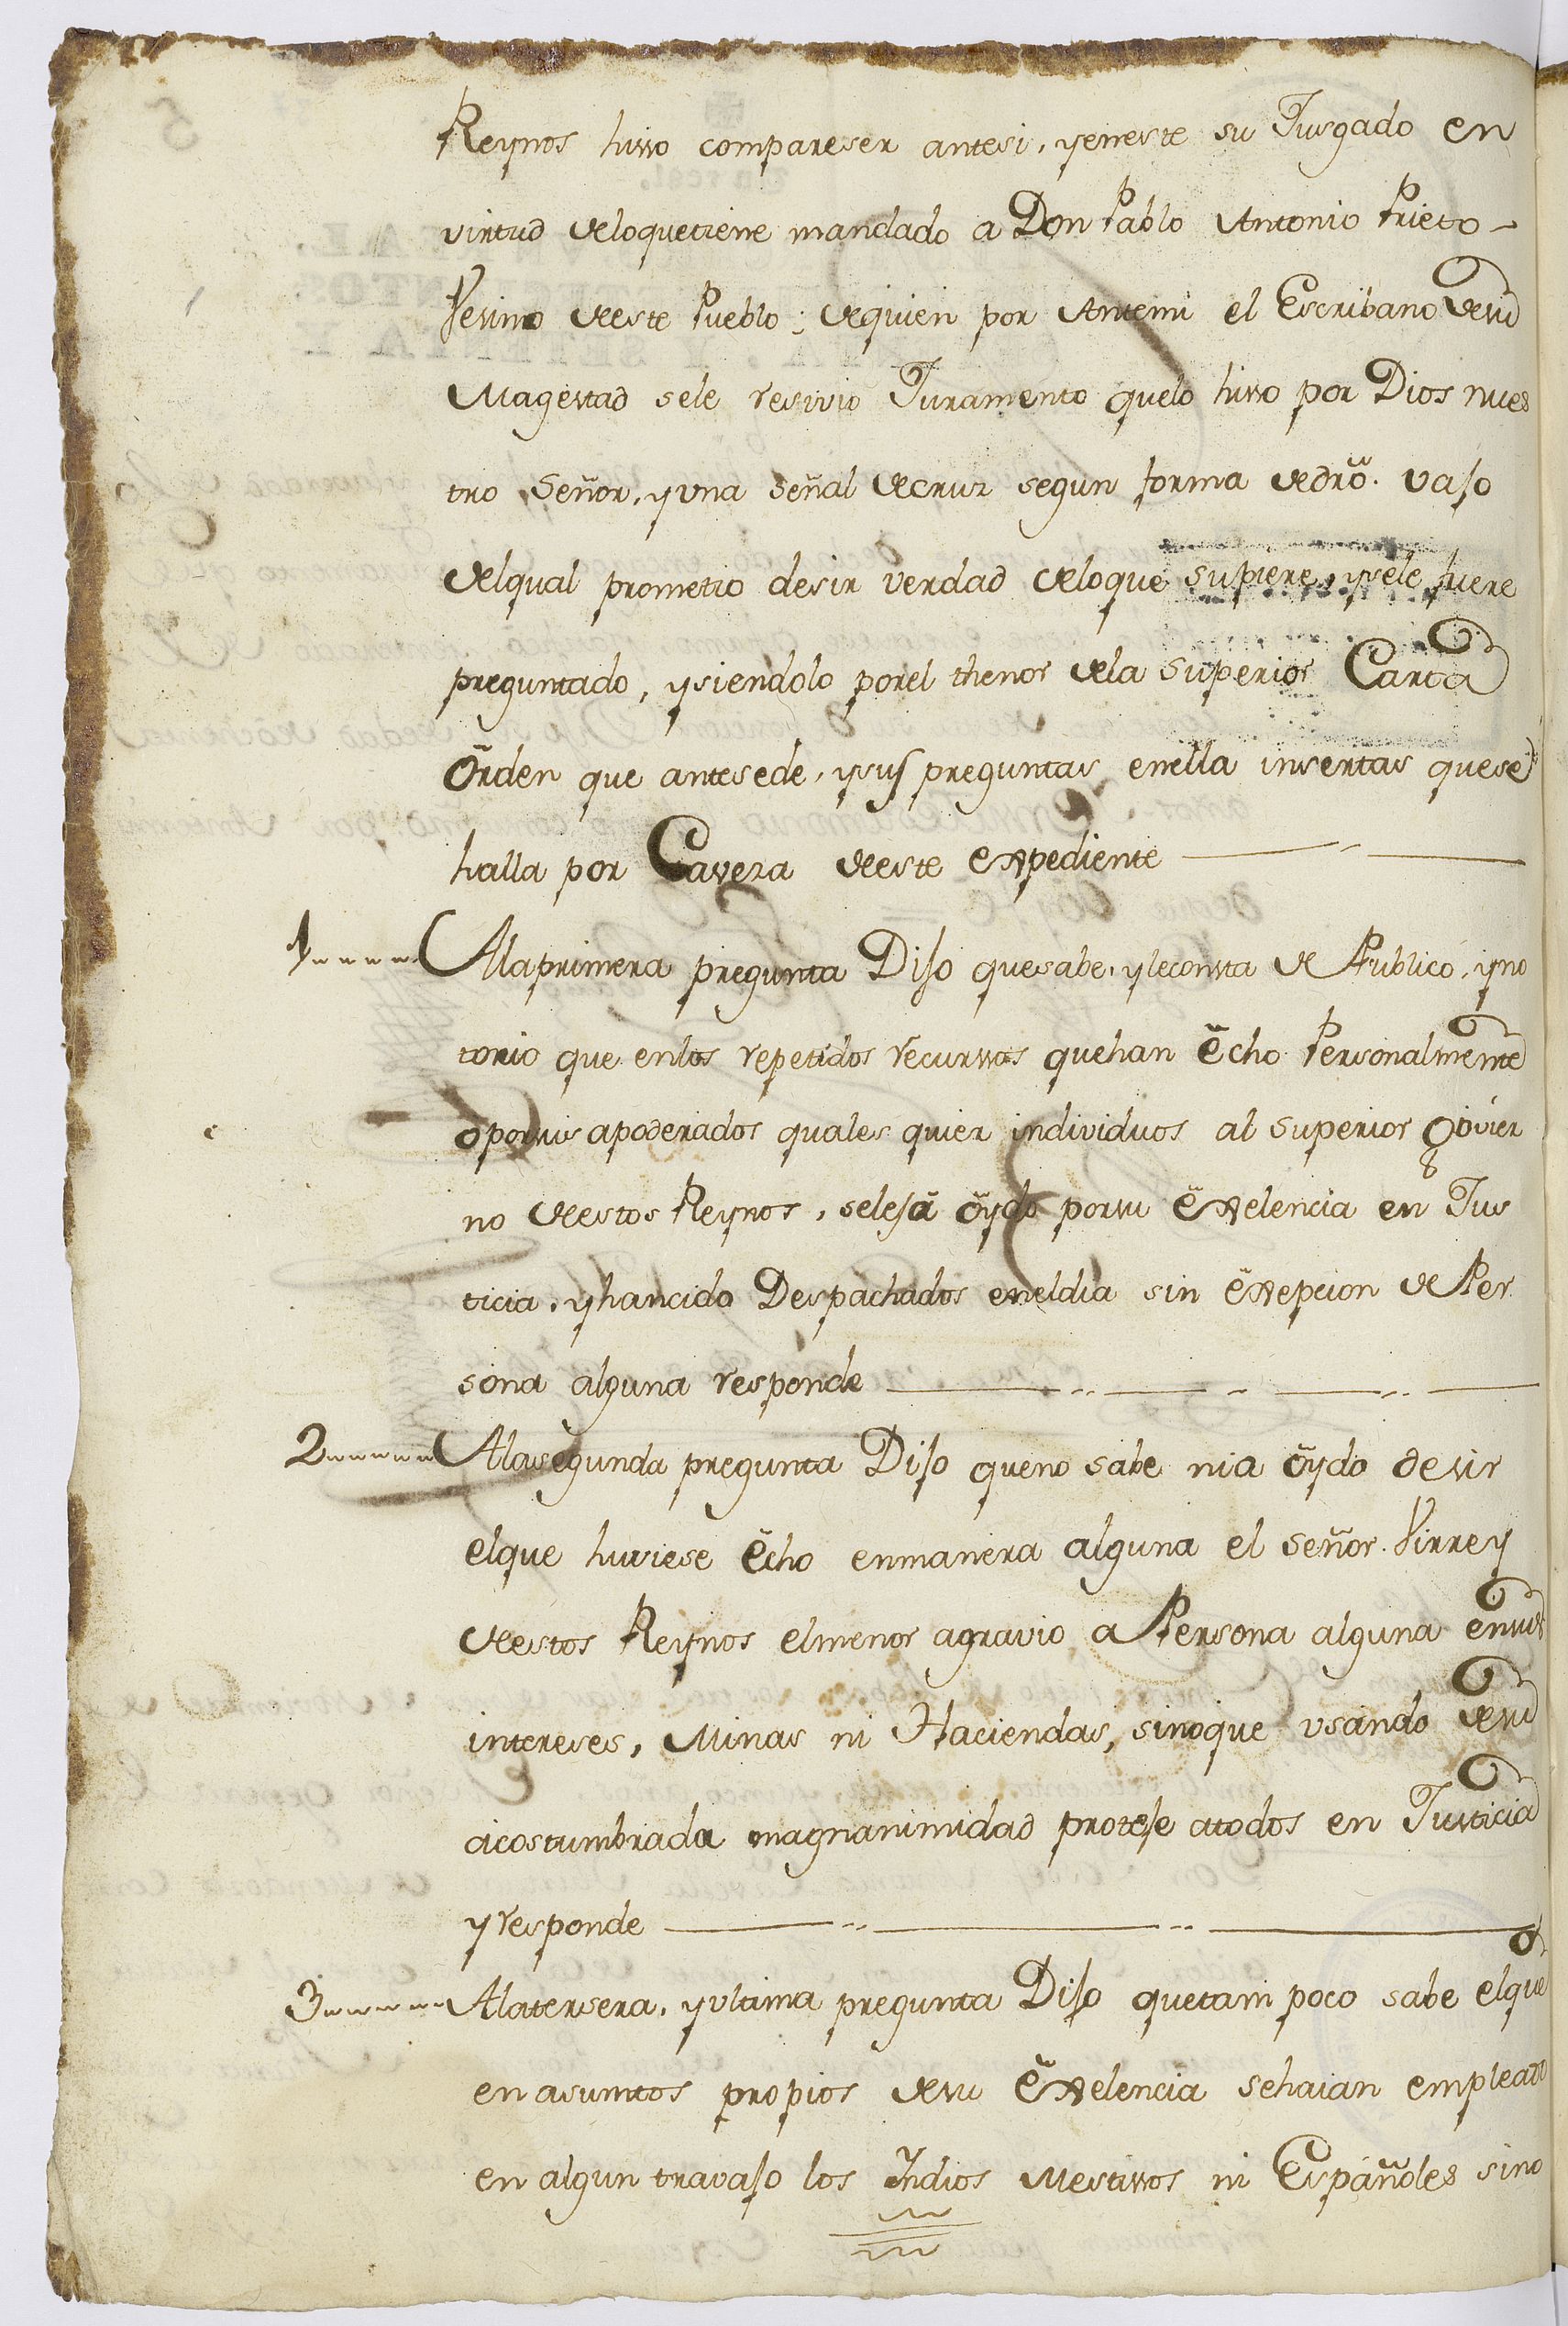 Reynos hisso compareser antesi, yeneste su Jusgado en
virtud deloquetiene mandado a Don Pablo Antonio Prieto
Vesino deeste Pueblo; dequien por Antemi el Escribano desu
Magestad sele resivio Juramento quelo hisso por Dios nues
tro Señor, yuna señal decruz segun forma dedrō. vajo
delqual prometio desir verdad deloque supiere, ysele fuere
preguntado, ysiendolo porel thenor dela superior Carta
Orden que antesede, ysus preguntas enella insertas quese
halla por Cavesa deeste expediente
1 Alaprimera pregunta Dijo quesabe, yleconsta de Publico, yno
torio que enlos repetidos recurssos quehan echo Personalmente
oporsus apoderados quales quier individuos al superior Govier
no deestos Reynos, selesá oydo porsu exelencia en Jus
ticia, yhancido Despachados eneldia sin exepcion de Per
sona alguna responde
2 Alasegunda pregunta Dijo queno sabe nia oydo desir
elque huviese echo enmanera alguna el señor Virrey
deestos Reynos elmenor agravio a Persona alguna ensus
intereses, Minas ni Haciendas, sinoque usando desu
acostumbrada magnanimidad proteje atodos en Justicia
y responde
3 Alatersera, yultima pregunta Dijo quetam poco sabe elque
en asuntos propios desu exelencia sehaian empleado
en algun travajo los Yndios Mestissos ni Españoles sino